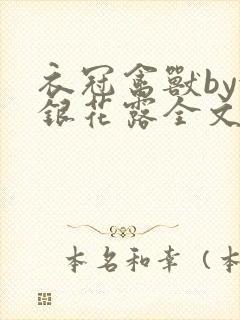 衣冠禽獸by
銀花露全文
本名和幸（本